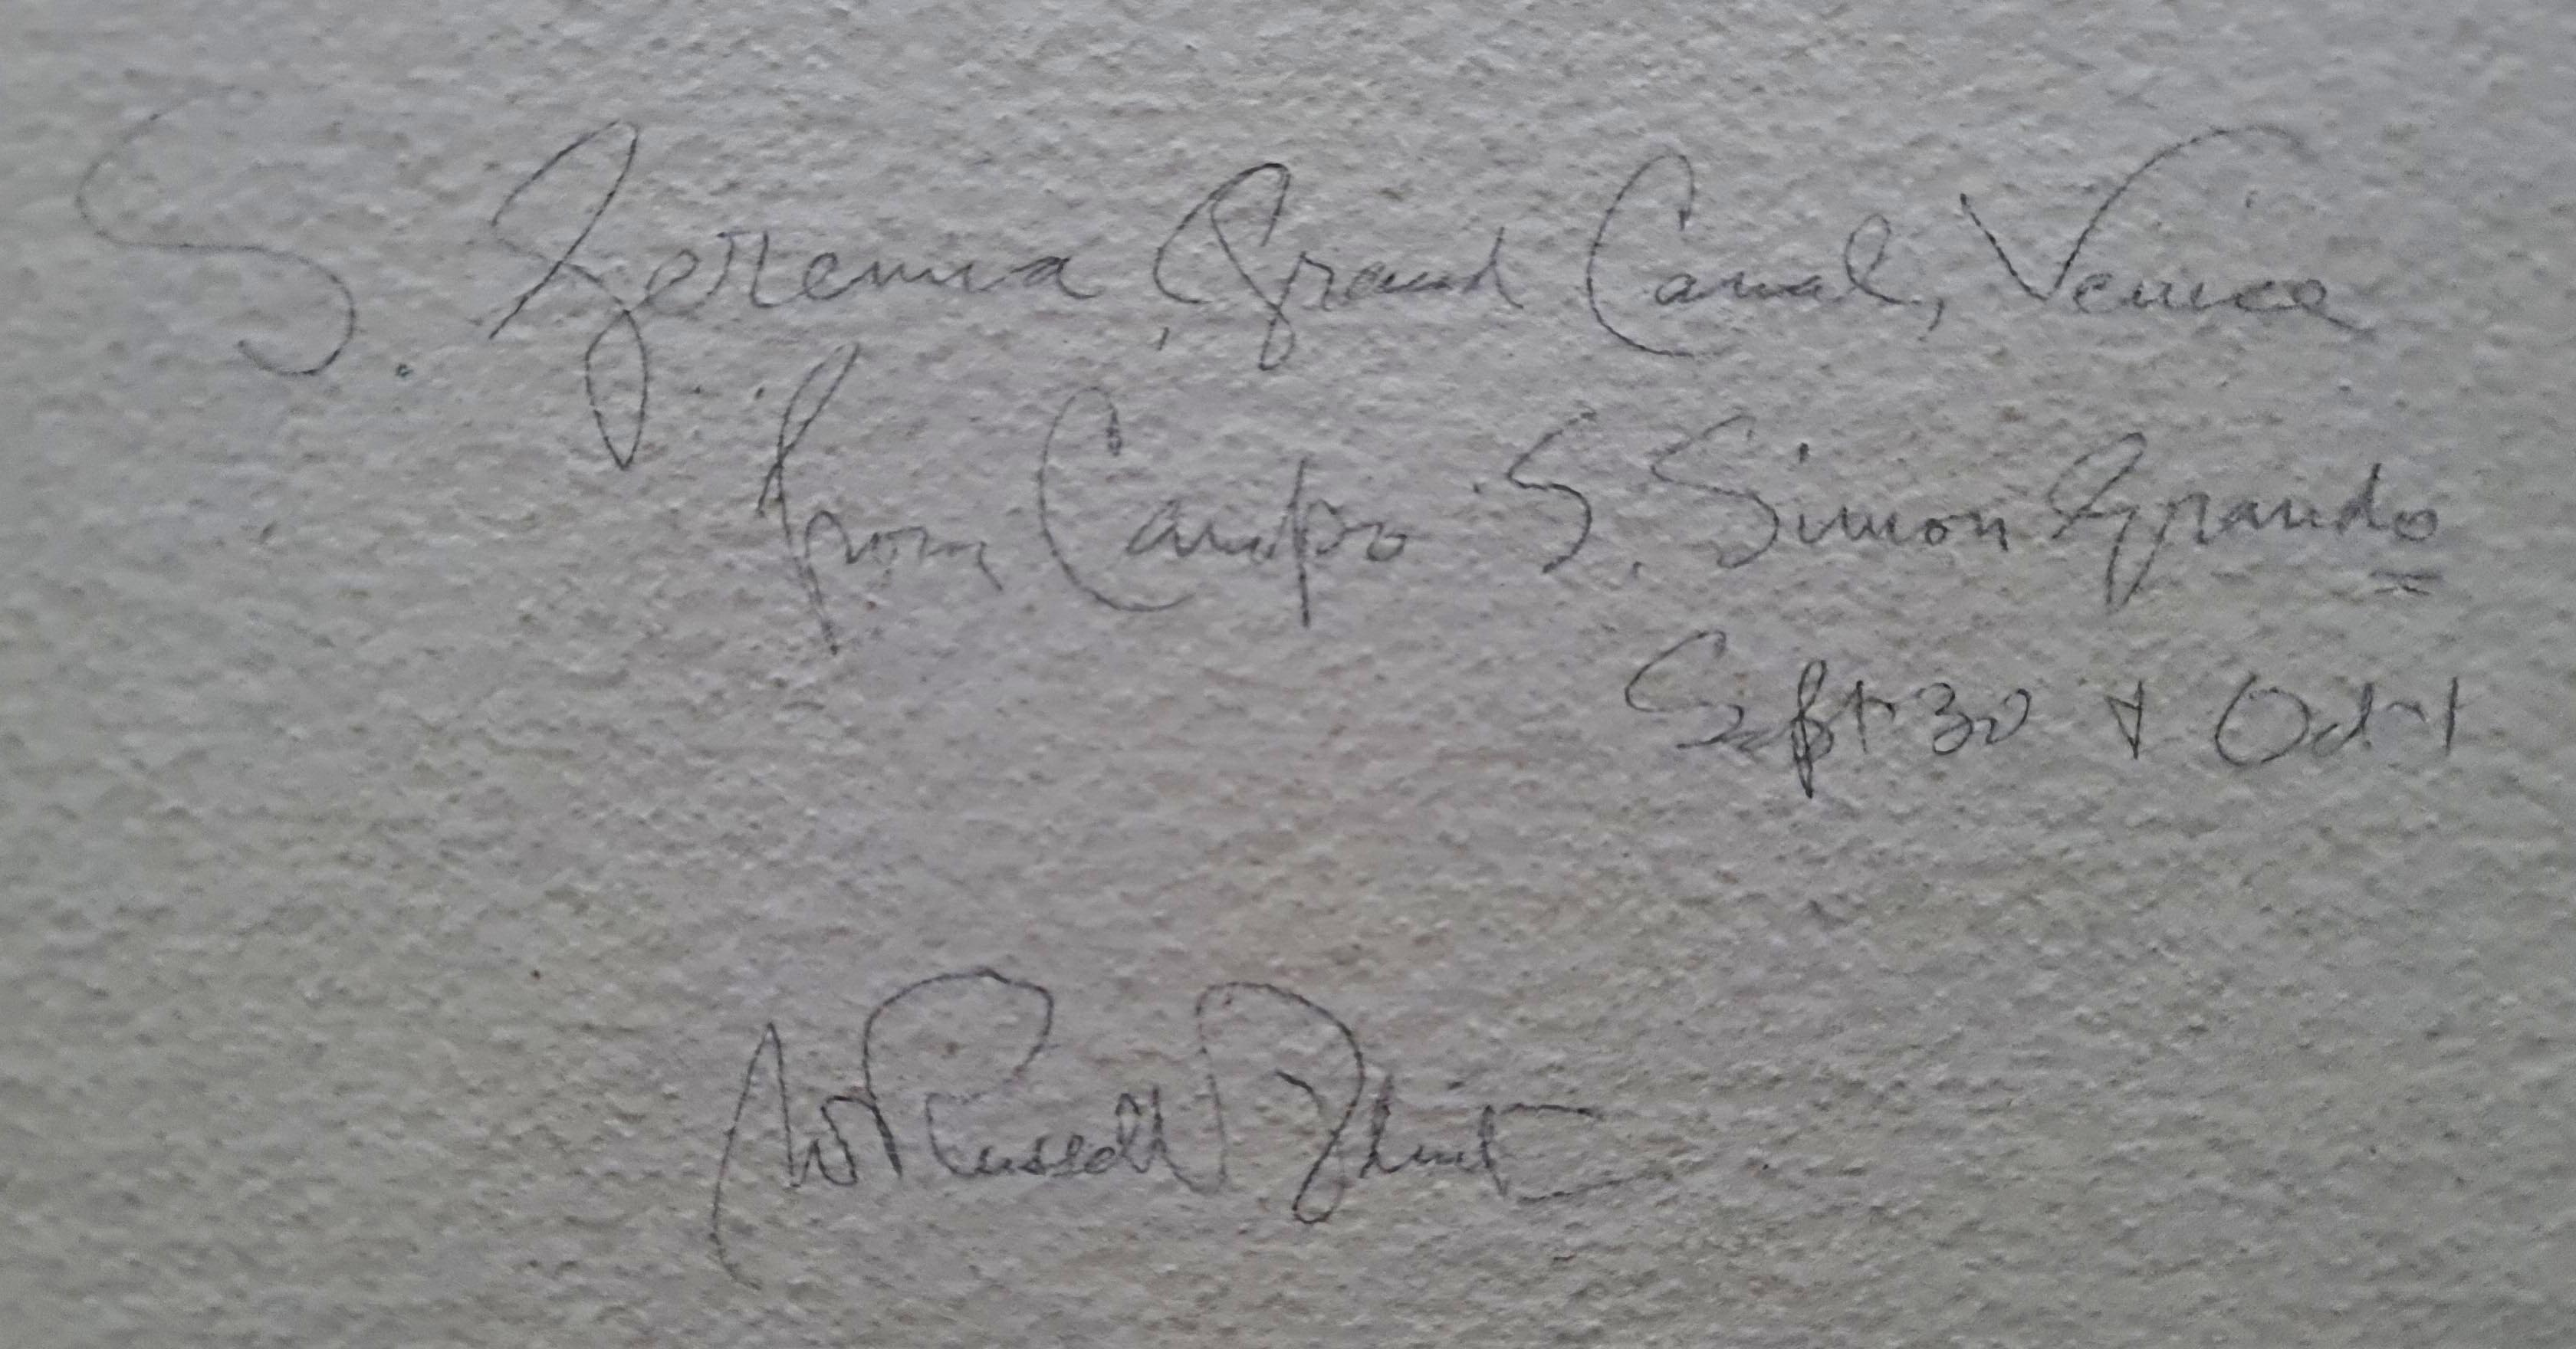 S. Geremia, Grand Canal, Venice
from Campo S. Simon Grando
Sept 30 + Oct 1
W Russell Flint